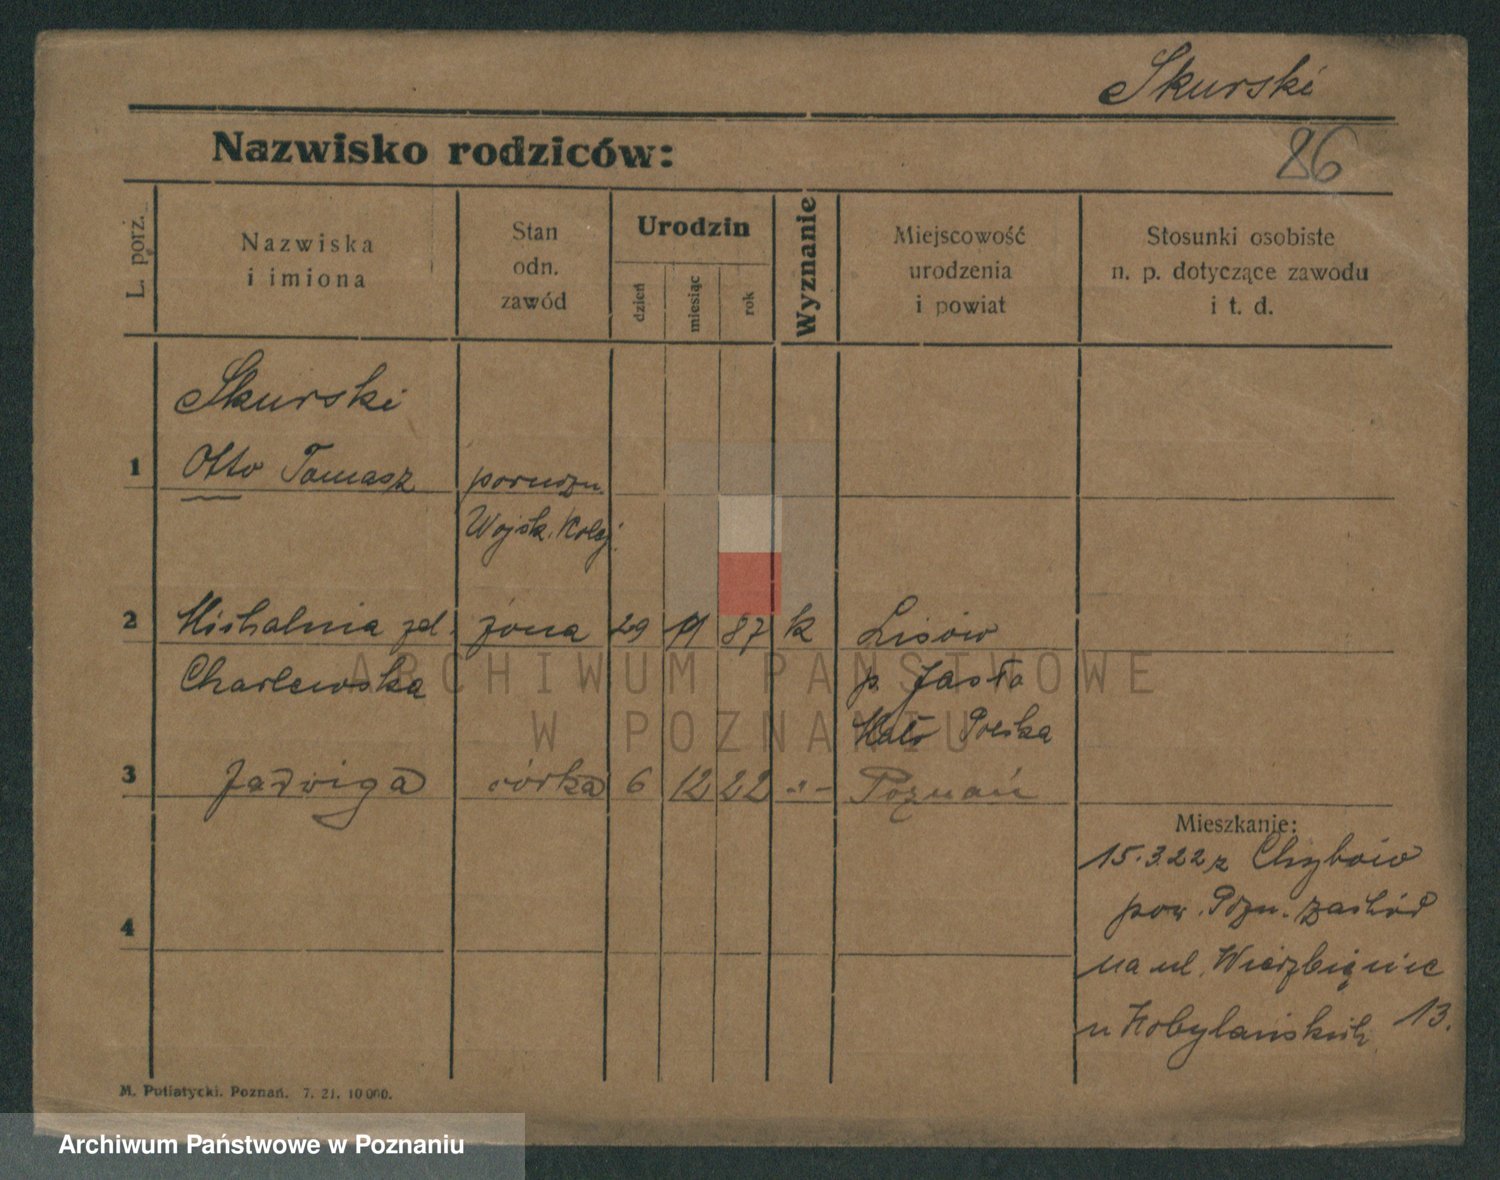 Skurski
86
Nazwisko rodziców:
L. porz.
Nazwiska
i imiona
Stan
odn.
zawód
Urodzin
dzień
miesiąc
rok
Wyznanie
Miejscowość
urodzenia
i powiat
Stosunki osobiste
n. p. dotyczące zawodu
i t. d.
Skurski
1 Otto Tomasz
Wojsk. Kolej.
2 Michalina zd. żona 29 11 87 k Lisów
Charlewska p. Jasło
Mało Polska
3 Jadwiga córka 6 12 22 -"- Poznań
Mieszkanie:
15.3.22 z Chybów
pow. Pozn. zachód
na ul. Wierzbięcice
u Kobylańskich 13.
4
M. Putiatycki. Poznań. 7. 21. 10 000.
ARCHIWUM PAŃSTWOWE
W POZNANIU
Archiwum Państwowe w Poznaniu